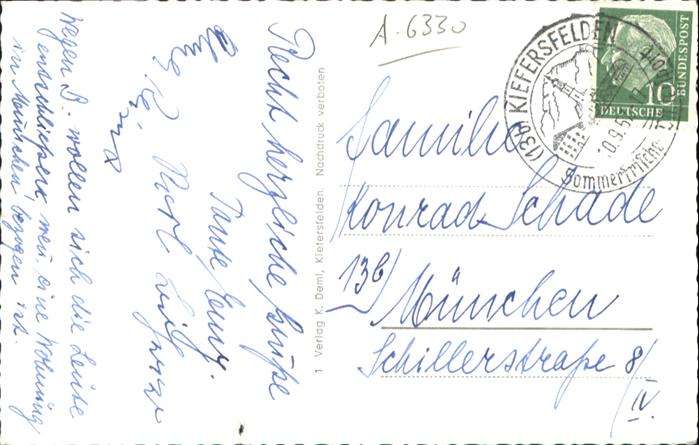 A-6330
Recht herzliche Grüße
Tante Emmy.
Karl
Wegen D. wollen sich die Leute
wenn eine Wohnung
in München bezogen ist.
1 Verlag K. Deml, Kiefersfelden. Nachdruck verboten
(13b) KIEFERSFELDEN
10.9.5
Sommerfrische
10
DEUTSCHE
BUNDESPOST
Familie
Konrad Schade
13b)
München
Schillerstraße 8/
IV.